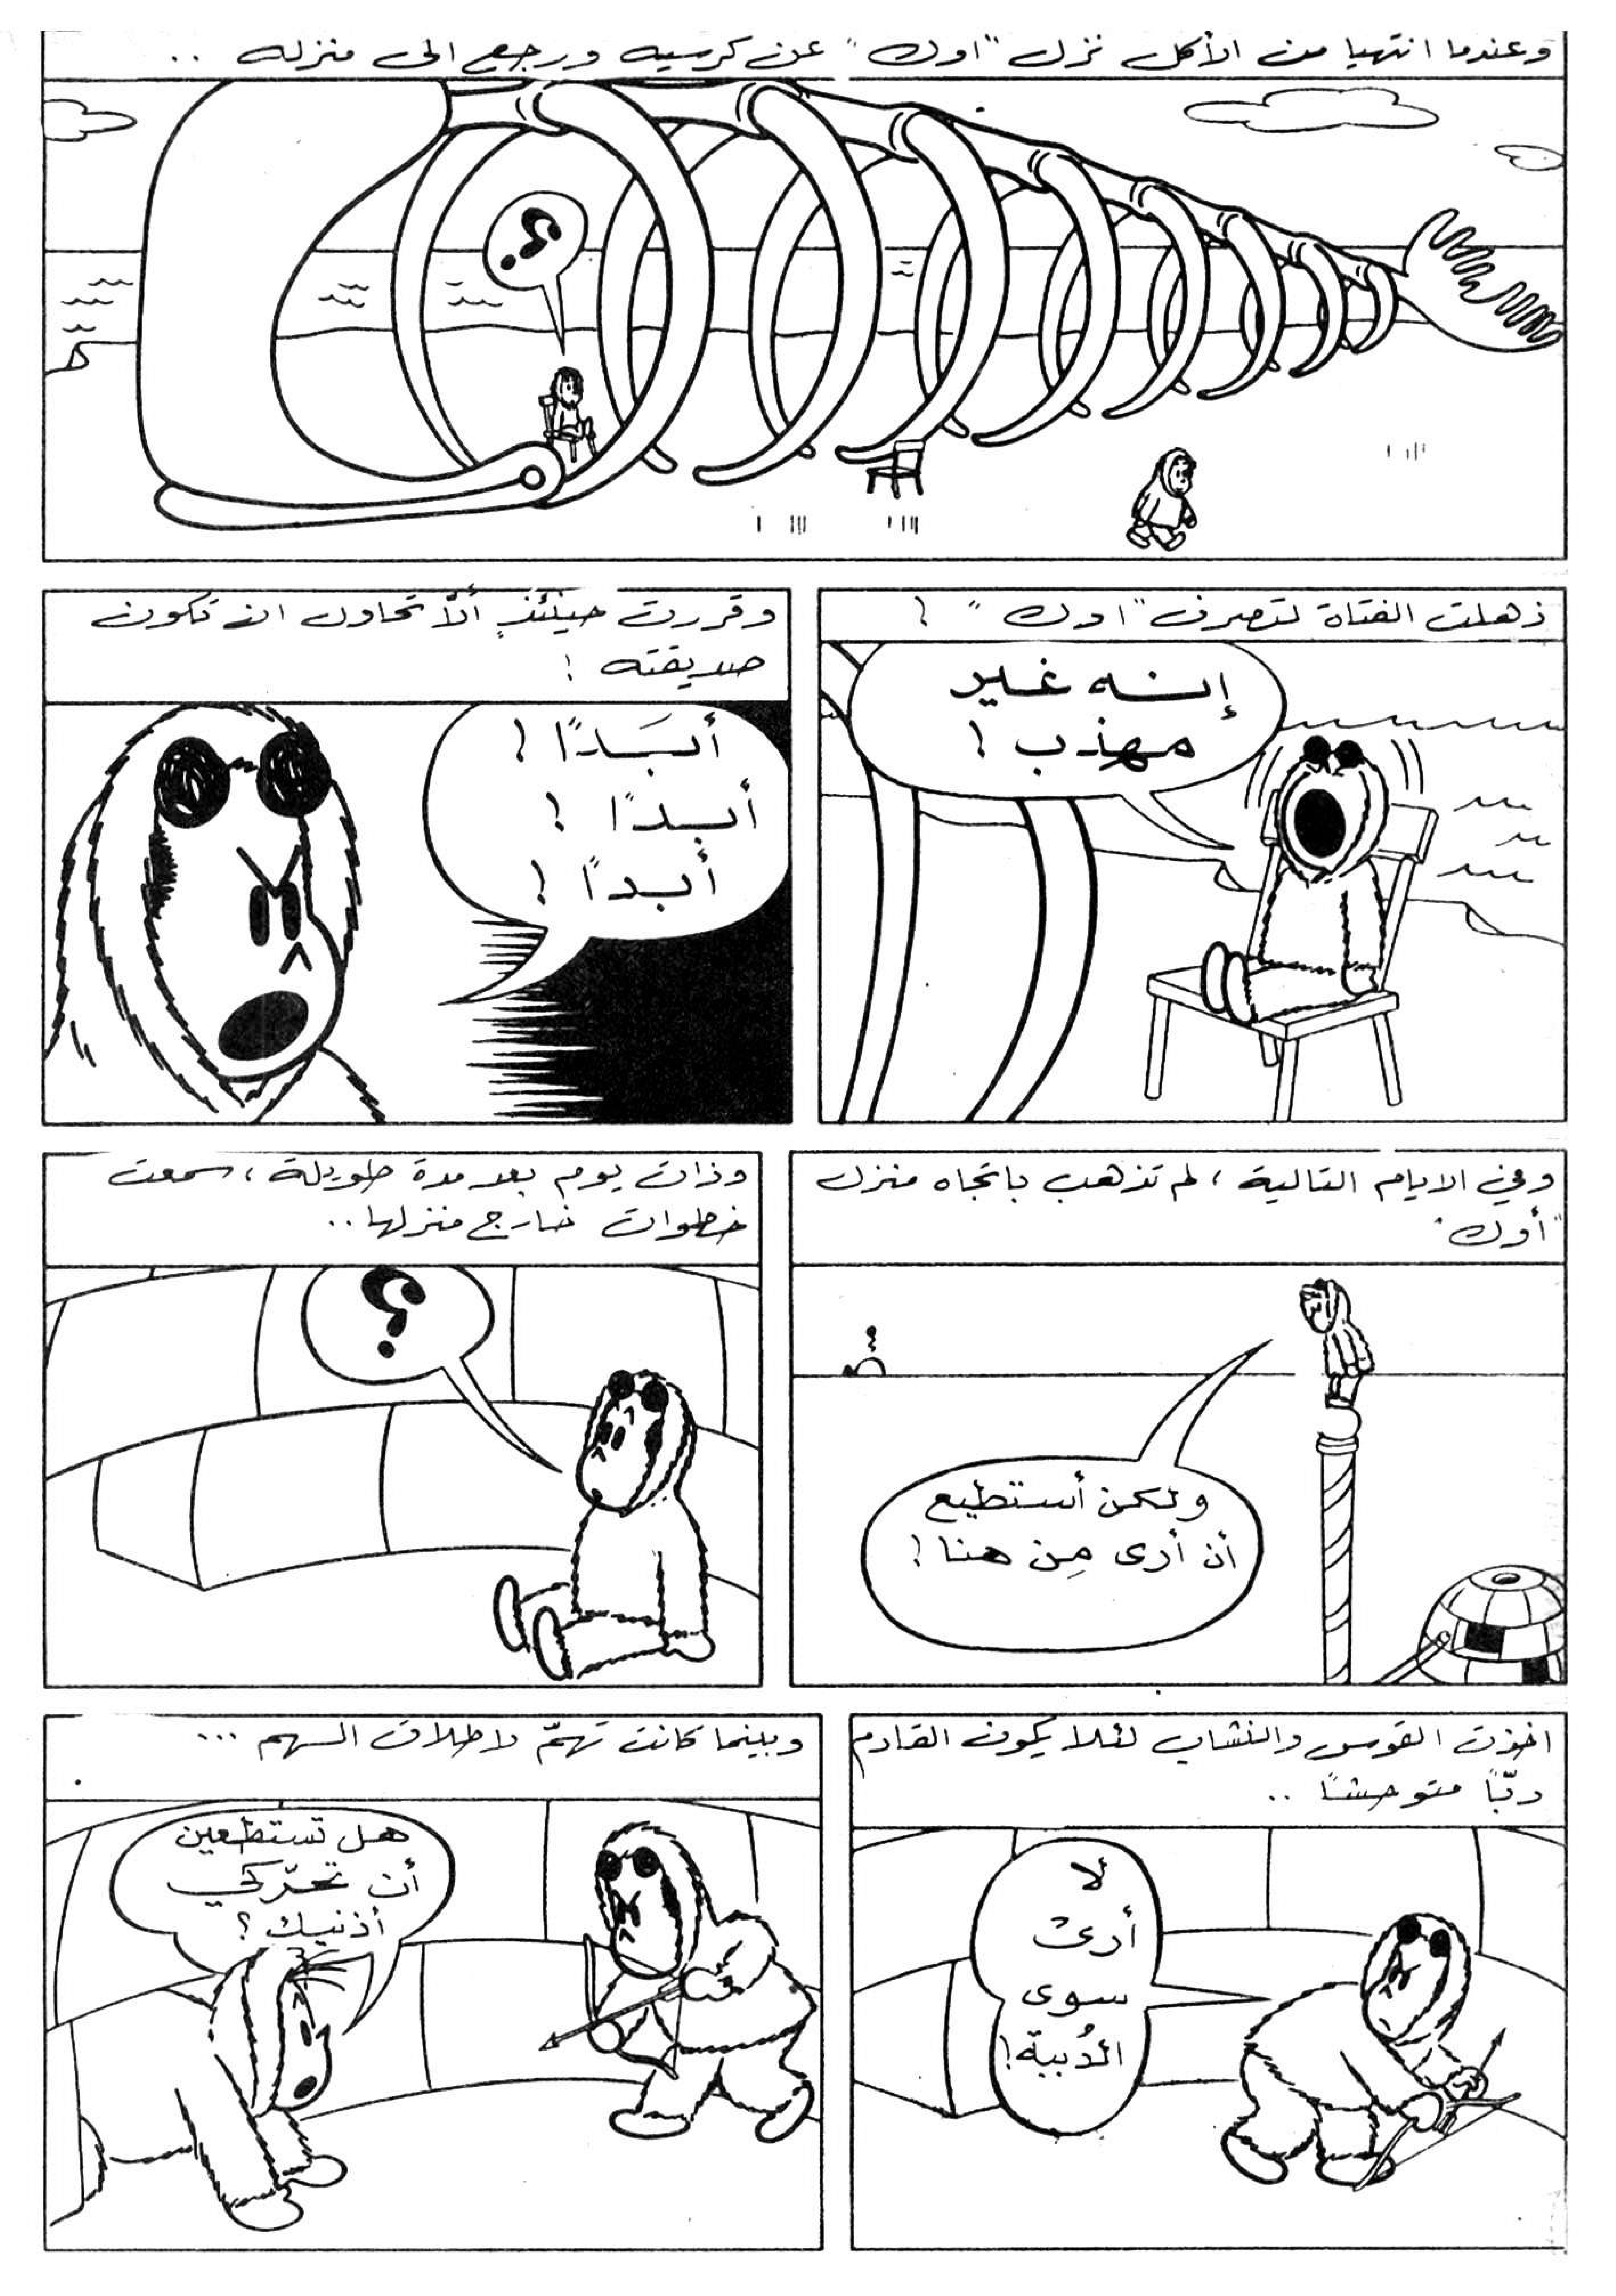 وعندما انتهيا من الأكل نزل "اوك" عن كرسيه ورجع الى منزله ..
؟
ذهلت الفتاة لتصرف "اوك" !
إنه غير
مهذب !
وقررت حينئذٍ ألاّ تحاول ان تكون
صديقته !
أبَدًا !
أبدًا !
أبدًا !
وفي الايام التالية ، لم تذهب باتجاه منزل
"أوك"
ولكن أستطيع
أن أرى مِن هنا !
وذات يوم بعد مدة طويلة ، سمعت
خطوات خارج منزلها ..
؟
اخذت القوس والنشاب لئلا يكون القادم
دبّاً متوحشاً ..
لا
أرى
سوى
الدُببة !
وبينما كانت تهمّ لاطلاق السهم ...
هل تستطعين
أن تحرّكي
أذنيك ؟